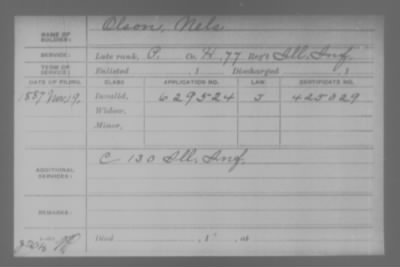 NAME OF SOLDIER: Olson, Nels
SERVICE: Late rank, P. Co. H, 77 Reg't Ill. Inf.
TERM OF SERVICE: Enlisted , 1 Discharged , 1
DATE OF FILING. CLASS APPLICATION NO. LAW CERTIFICATE NO.
1887 Nov. 19, Invalid, 629524 J 425029
Widow,
Minor,
ADDITIONAL SERVICES: C 130 Ill. Inf.
REMARKS:
Died , 1 , at